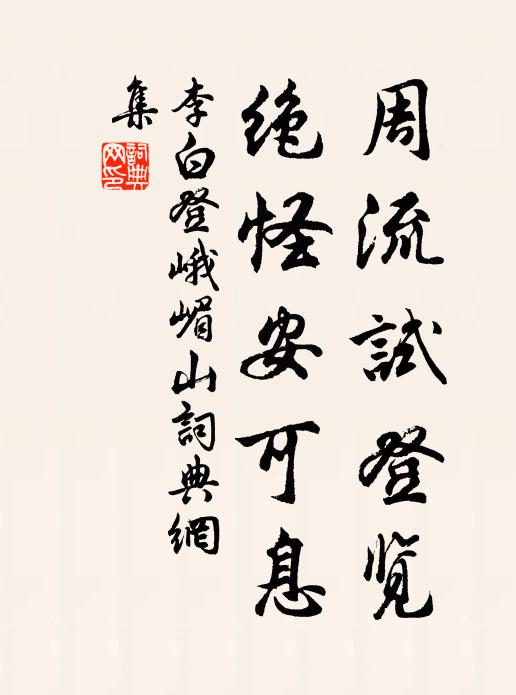 周流試登览
绝怪安可息
李白登峨嵋山詞典網
集
詞典網印